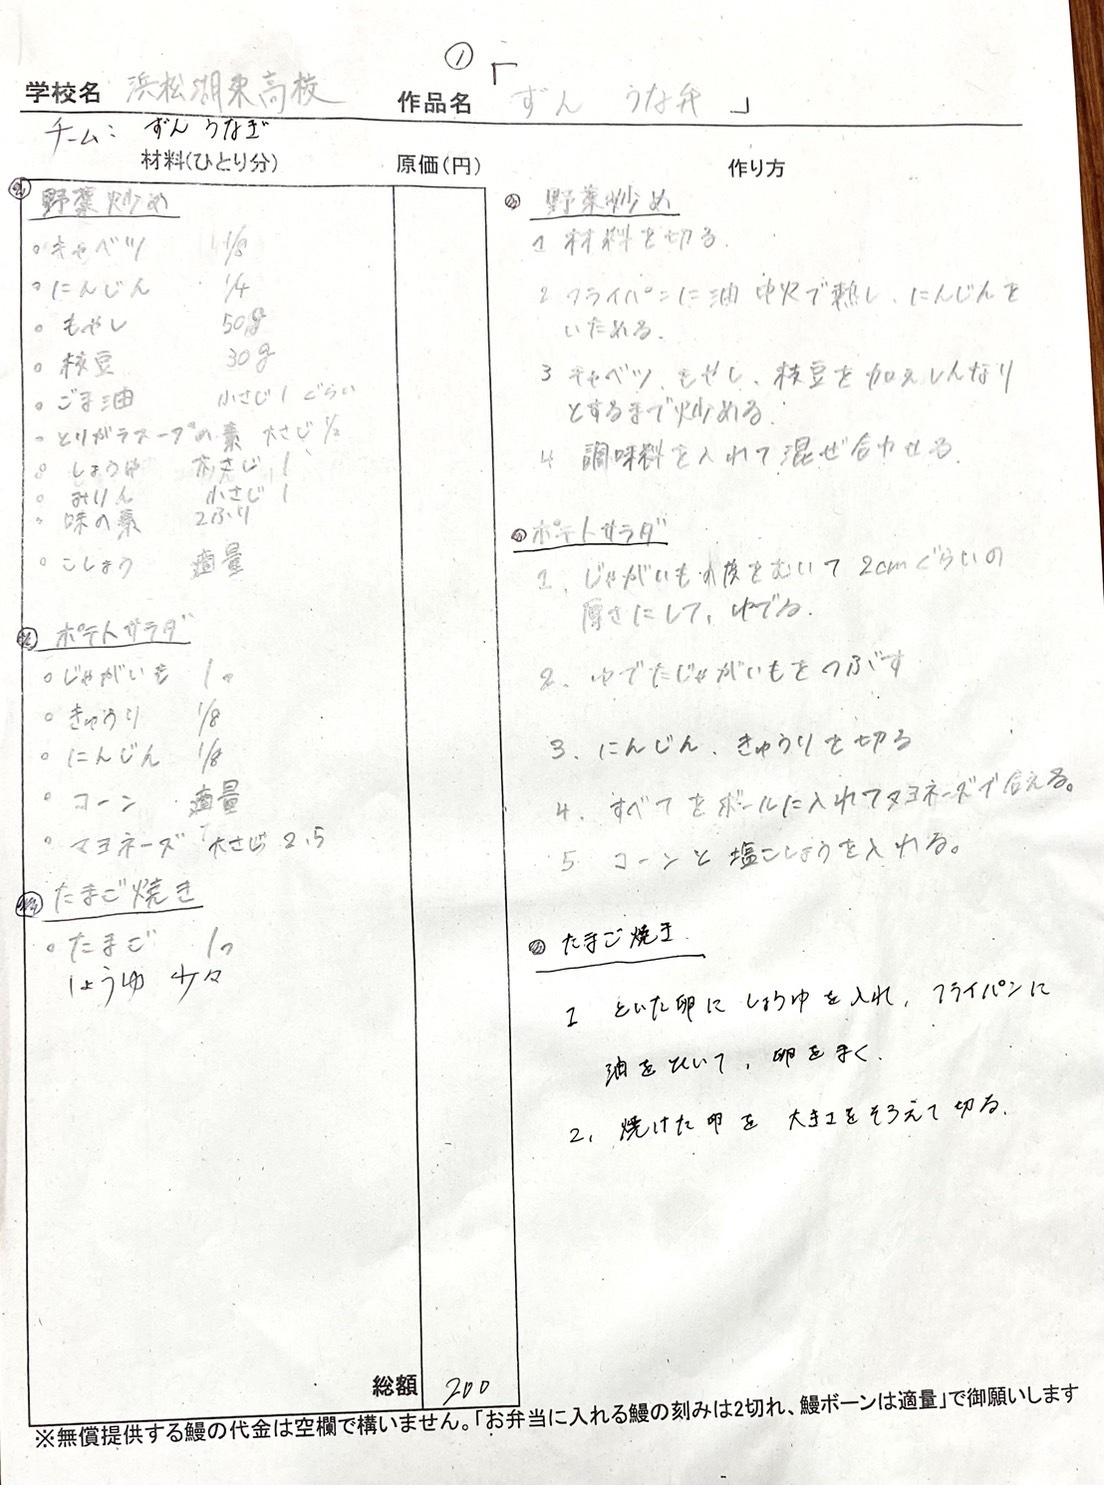 ①
学校名 浜松湖東高校 作品名 「ずん うな弁」
チーム: ずん うなぎ
材料(ひとり分) 原価(円) 作り方
野菜炒め
・キャベツ 1/8
・にんじん 1/4
・もやし 50g
・枝豆 30g
・ごま油 小さじ1ぐらい
・とりがらスープの素 大さじ1/2
・しょうゆ 大さじ1
・みりん 小さじ1
・味の素 2ふり
・こしょう 適量
ポテトサラダ
・じゃがいも 1つ
・きゅうり 1/8
・にんじん 1/8
・コーン 適量
・マヨネーズ 大さじ2.5
たまご焼き
・たまご 1つ
しょうゆ 少々
総額 200
野菜炒め
1 材料を切る.
2 フライパンに油 中火で熱し、にんじんを
いためる.
3 キャベツ、もやし、枝豆を加えしんなり
とするまで炒める.
4 調味料を入れて混ぜ合わせる.
ポテトサラダ
1、じゃがいも皮をむいて2cmぐらいの
厚さにして、ゆでる.
2、ゆでたじゃがいもをつぶす
3、にんじん、きゅうりを切る
4、すべてをボールに入れてマヨネーズで合える。
5 コーンと塩こしょうを入れる。
たまご焼き
1 といた卵にしょうゆを入れ、フライパンに
油をひいて、卵をまく.
2、焼けた卵を大きさをそろえて切る.
※無償提供する鰻の代金は空欄で構いません。「お弁当に入れる鰻の刻みは2切れ、鰻ボーンは適量」で御願いします